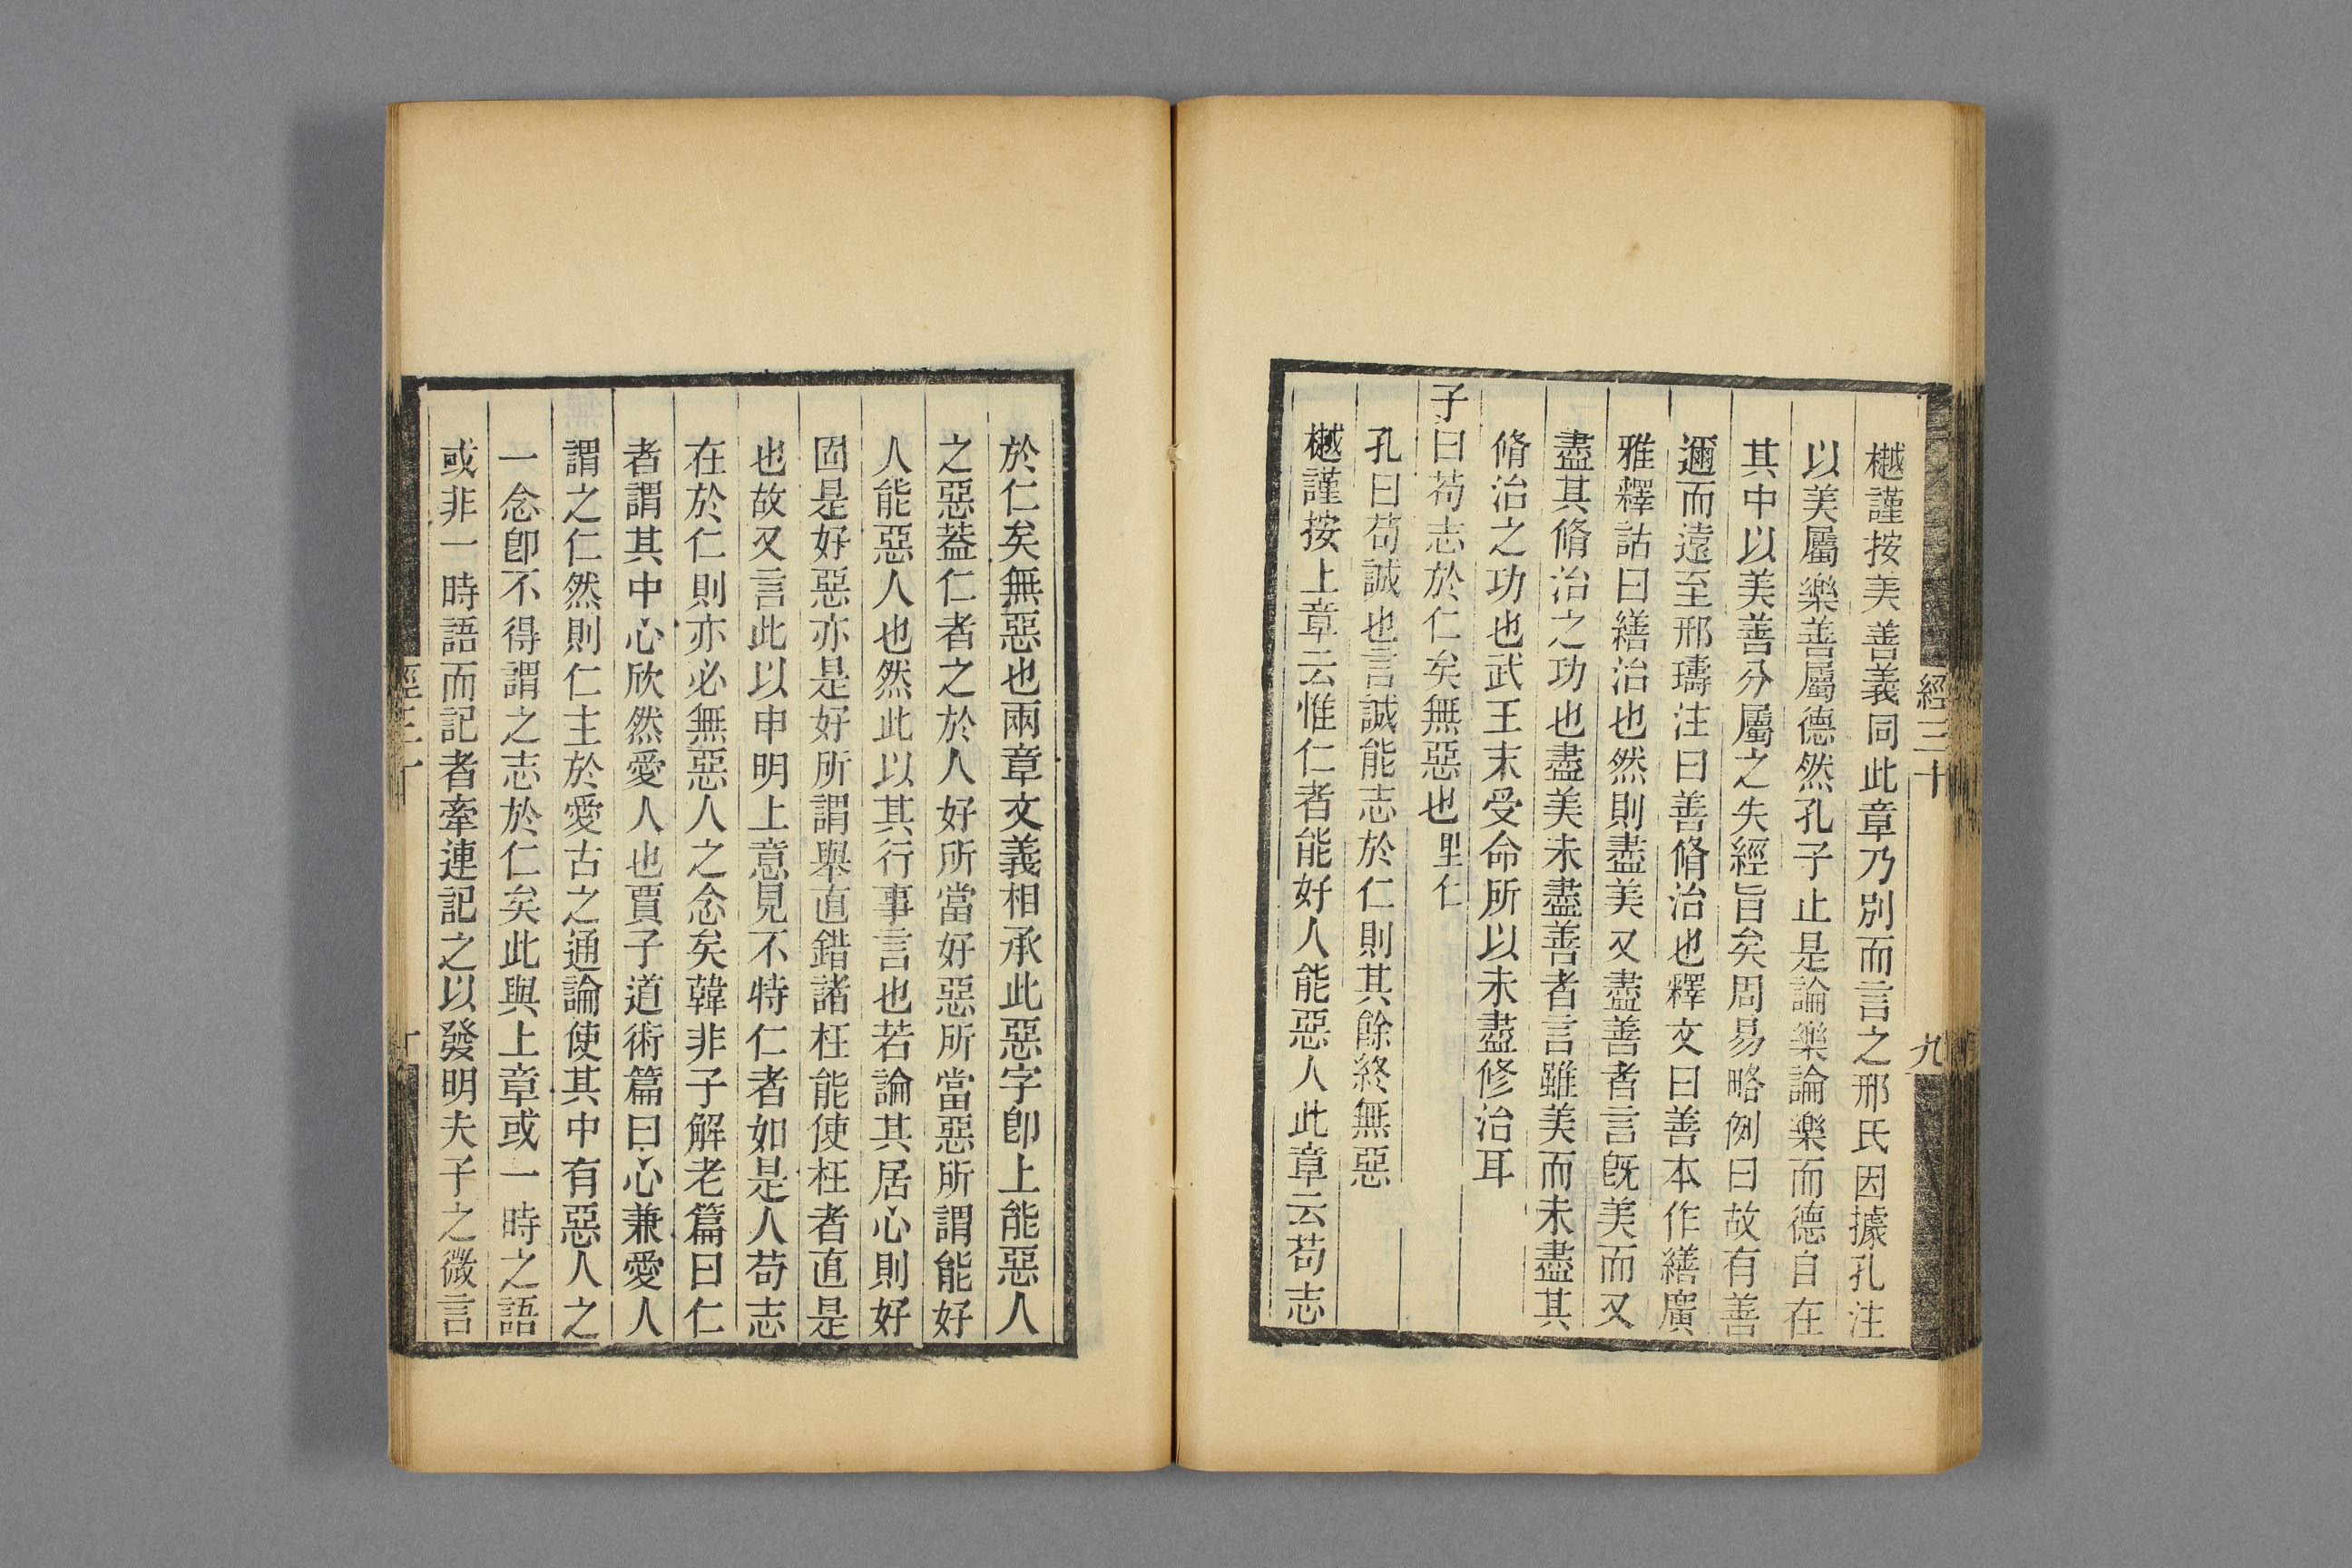 經三十
九
樾謹按美善義同此章乃別而言之邢氏因據孔注
以美屬樂善屬德然孔子止是論樂論樂而德自在
其中以美善分屬之失經旨矣周易略例曰故有善
邇而遠至邢璹注曰善脩治也釋文曰善本作繕廣
雅釋詁曰繕治也然則盡美又盡善者言既美而又
盡其脩治之功也盡美未盡善者言雖美而未盡其
脩治之功也武王末受命所以未盡修治耳
子曰苟志於仁矣無惡也里仁
孔曰苟誠也言誠能志於仁則其餘終無惡
樾謹按上章云惟仁者能好人能惡人此章云苟志
於仁矣無惡也兩章文義相承此惡字卽上能惡人
之惡葢仁者之於人好所當好惡所當惡所謂能好
人能惡人也然此以其行事言也若論其居心則好
固是好惡亦是好所謂舉直錯諸枉能使枉者直是
也故又言此以申明上意見不特仁者如是人苟志
在於仁則亦必無惡人之念矣韓非子解老篇曰仁
者謂其中心欣然愛人也賈子道術篇曰心兼愛人
謂之仁然則仁主於愛古之通論使其中有惡人之
一念卽不得謂之志於仁矣此與上章或一時之語
或非一時語而記者牽連記之以發明夫子之微言
經三十
十